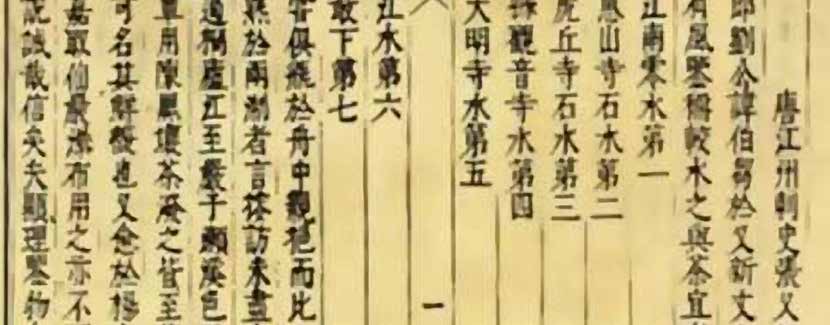 唐江州刺史張又
郎劉公諱伯芻於又新丈
有風鑒稱較水之與茶宜
江南零水第一
惠山寺石水第二
虎丘寺石水第三
觀音寺水第四
大明寺水第五
一
江水第六
最下第七
嘗俱瓶於舟中親挹而比
熟於兩浙者言搜訪未盡
過桐廬江至嚴子瀨溪色
用陳黑壞茶潑之皆至
可名其鮮馥也又愈於揚
嚴取仙巖瀑布用之亦不
說誠哉信矣夫顯理鑒物